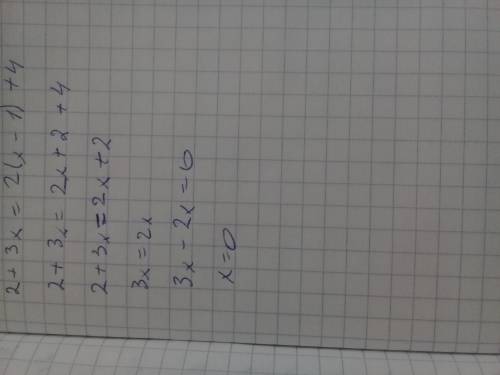 2 + 3x = 2(x - 1) + 4
2 + 3x = 2x + 2 + 4
2 + 3x = 2x + 2
3x = 2x
3x - 2x = 0
x = 0